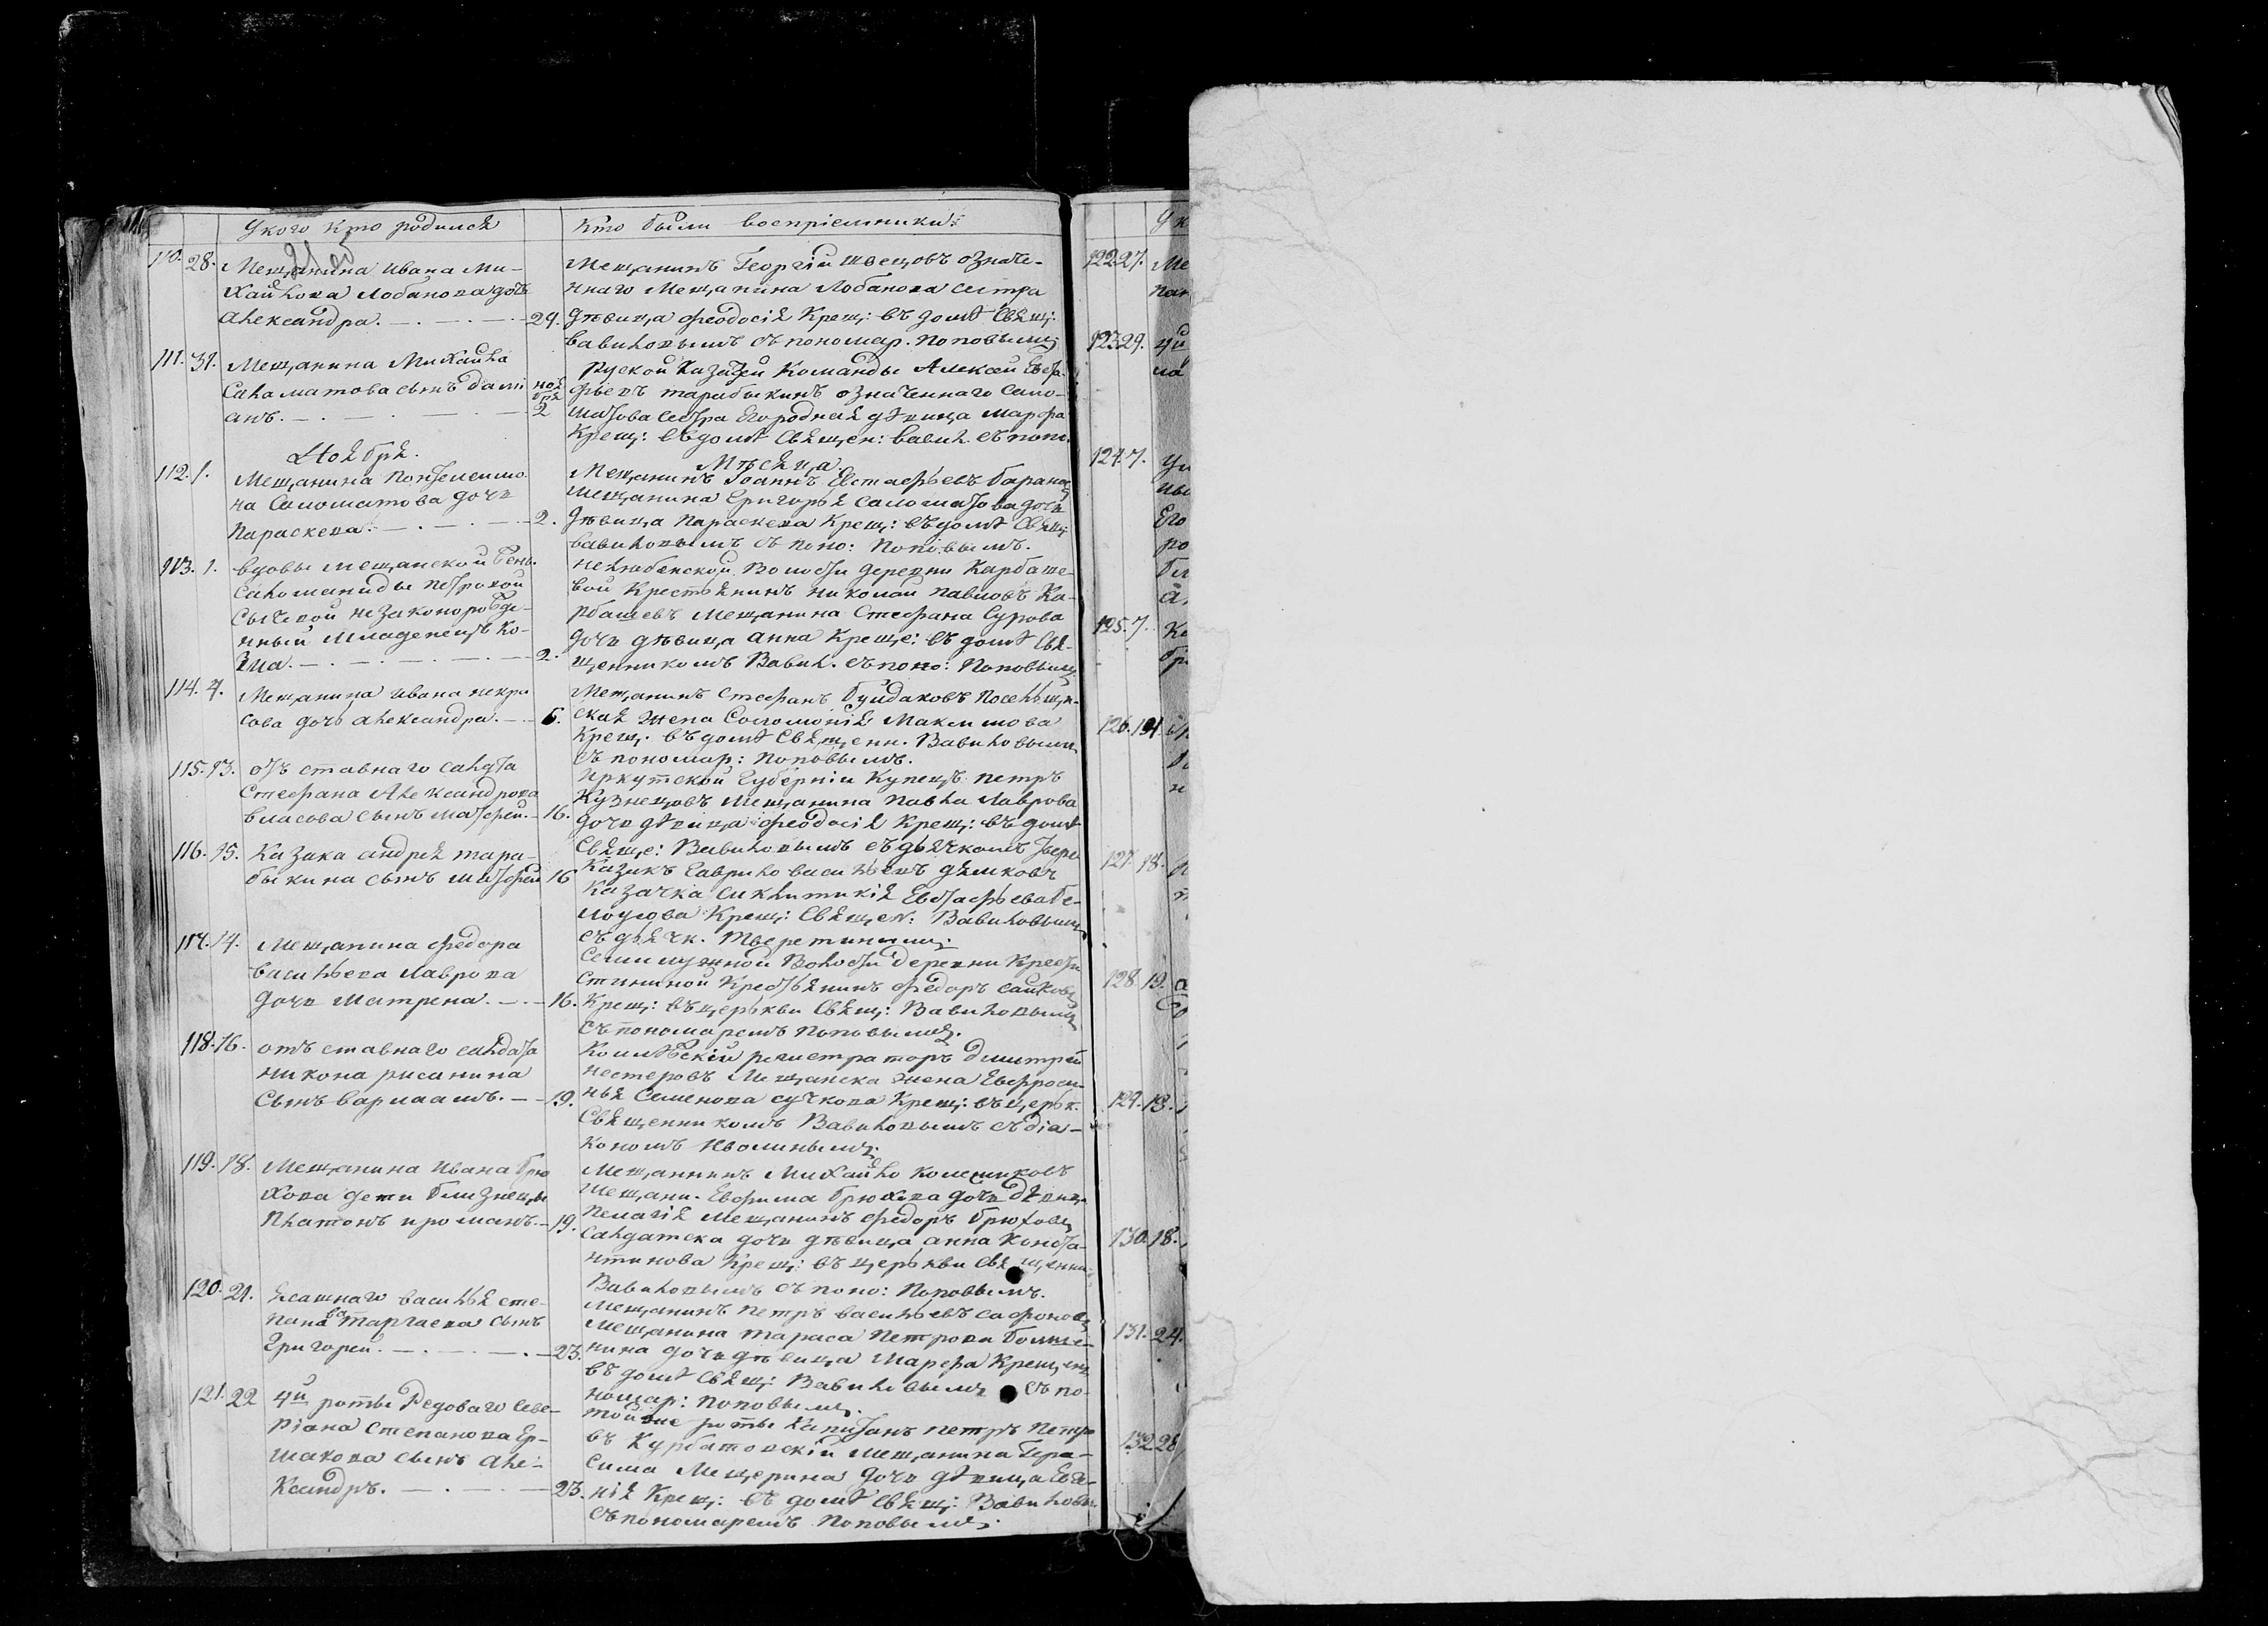 У кого кто родился
Кто были восприемники
110. 28. Мещанина ивана Ми-
хайлова Лобанова дочь
александра. 29.
Мещанинъ Георгій швецовъ означе-
ннаго мещанина Лобанова сестра
дѣвица феодосія Крещ: въ домѣ Свящ:
вавиловымъ съ пономар. Поповымъ
111. 31. Мещанина Михайла
Саламатова сынъ Дами
анъ. ноя
бря
2
Руской Казачей Команды Алексей Евста-
фьевъ тарабыкинъ означеннаго Сало-
матова сестра Его родная дѣвица марфа
Крещ: въ домѣ Священ: вавил. съ поно.
Ноября.
Мѣсяца
112. 1. Мещанина
на Саломатова дочь
Параскева. 2.
Мещанинъ Іоаннъ Евстафьевъ
Мещанина Григорья саломатова дочь
дѣвица Параскева Крещ: въ домѣ Свящ:
вавиловымъ съ поно: Поповымъ.
113. 1. вдовы мещанской
Саломаниды Петровой
Сычевой незаконорожде-
нный младенецъ Ко-
зма. 2.
Нелюбенской Волости деревни Карбыше-
вой Крестьянинъ николай павловъ Ка-
рбышевъ мещанина Стефана Сурова
дочь дѣвица анна Креще: въ домѣ Свя-
щенникомъ Вавил. съ поно: Поповымъ
114. 4. Мещанина ивана некра
сова дочь александра. 6.
Мещанинъ стефанъ Буйдаковъ Посельщи-
ская жена Соломонія Максимова
Крещ. въ домѣ Священн. Вавиловымъ
съ пономар: Поповымъ.
115. 13. отъ ставнаго салдата
Стефана Александрова
власова сынъ матфей. 16.
Иркутской Губерніи Купецъ петръ
Кузнецовъ мещанина павла Лаврова
дочь дѣвица феодосія Крещ: въ домѣ
Свяще: Вавиловымъ съ дьячкомъ
116. 15. Казака андрея тара-
быкина сынъ матфей 16
Казакъ Гаврило васильевъ
Казачка Евстафьева Бе-
лоусова Крещ: Свящ
ен: Вавиловымъ
съ дьячк. тверетинымъ.
117. 14. Мещанина федора
васильева лаврова
дочь матрена. 16.
Семилужной Волости деревни
Крестьянинъ федоръ
Крещ: въ церькви Свящ: Вавиловымъ
съ пономаремъ Поповымъ.
118. 16. отъ ставнаго салдата
никона рисанина
Сынъ варлаамъ. 19.
Колежскій регистраторъ дмитрей
нестеровъ Мещанска жена Евфроси-
нья Семенова сучкова Крещ: въ церьк.
Священникомъ Вавиловымъ съ діа-
кономъ
119. 18. Мещанина Ивана Брю
хова дети близнецы
Платонъ и романъ. 19.
Мещанинъ Михайло колесниковъ
мещани. Ефима Брюхова дочь дѣвица
Пелагія мещанинъ федоръ Брюховъ
Салдатска дочь дѣвица анна Конста-
нтинова Крещ: въ церькви Священни:
Вавиловымъ съ поно: Поповымъ.
120. 21. Ясашнаго василья сте-
панова таргаева сынъ
Григорей. 23.
мещанинъ петръ васильевъ сафоновъ
Мещанина тараса Петрова
нина дочь дѣвица марфа Крещенъ
въ домѣ Свящ: Вавиловымъ съ по-
номар: Поповымъ.
121. 22 4й роты Редоваго Севе-
ріана Степанова Ер-
макова сынъ але-
ксандръ. 23.
той же роты Капитанъ петръ Петро
въ Курбатовскій мещанина Гера-
сима Мещерина дочь дѣвица Евге-
нія Крещ: въ домѣ Свящ: Вавиловы
съ пономаремъ Поповымъ.
122 27. Ме
123 29.
124. 7.
Его
ро
125. 7.
126. 14
127. 18.
128. 19.
129. 13.
130. 18.
131. 24.
132 28